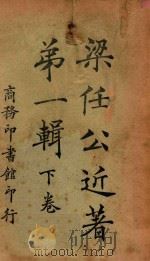 梁任公近著
苐一輯下卷
商務印書館印行
mtoou.info